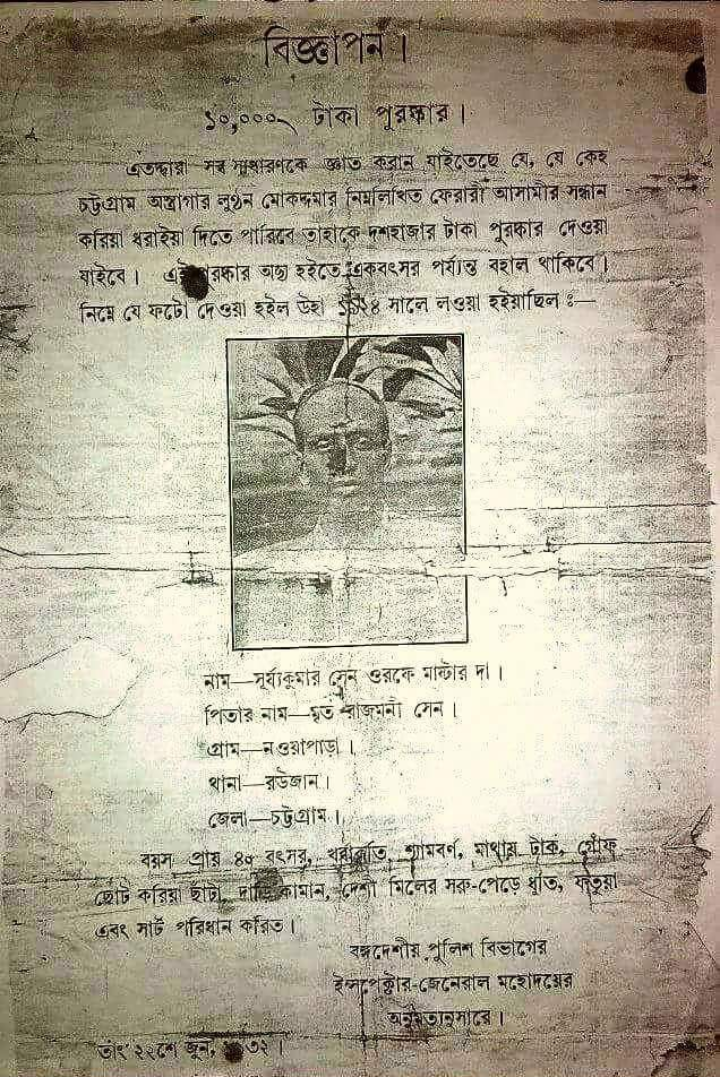 বিজ্ঞাপন।
১০,০০০৲ টাকা পুরষ্কার।
এতদ্দ্বারা সর্ব সাধারণকে জ্ঞাত করান যাইতেছে যে, যে কেহ
চট্টগ্রাম অস্ত্রাগার লুণ্ঠন মোকদ্দমার নিম্নলিখিত ফেরারী আসামীর সন্ধান
করিয়া ধরাইয়া দিতে পারিবে তাহাকে দশহাজার টাকা পুরষ্কার দেওয়া
যাইবে। এই পুরষ্কার অদ্য হইতে একবৎসর পর্য্যন্ত বহাল থাকিবে।
নিম্নে যে ফটো দেওয়া হইল উহা সালে লওয়া হইয়াছিল ঃ—
নাম—সূর্য্যকুমার সেন ওরফে মাষ্টার দা।
পিতার নাম—মৃত রাজমনী সেন।
গ্রাম—নওয়াপাড়া।
থানা—রউজান।
জেলা—চট্টগ্রাম।
বয়স প্রায় বৎসর, খর্ব্বাকৃতি, শ্যামবর্ণ, মাথায় টাক, গোঁফ
ছোট করিয়া ছাঁটা, দাড়ি কামান, দেশী মিলের সরু-পেড়ে ধুতি, ফতুয়া
এবং সার্ট পরিধান করিত।
বঙ্গদেশীয় পুলিশ বিভাগের
ইন্সপেক্টার-জেনেরাল মহোদয়ের
অনুমত্যনুসারে।
তাং ২২শে জুন,